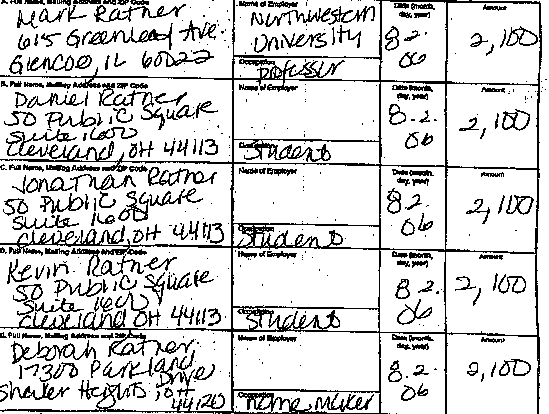 A. Full Name, Mailing Address and ZIP Code
Mark Ratner
615 Greenleaf Ave.
Glencoe, IL 60022
Name of Employer
Northwestern
University
Occupation
professor
Date (month, day, year)
8 2.
06
Amount
2,100
B. Full Name, Mailing Address and ZIP Code
Daniel Ratner
50 Public Square
Suite 1600
Cleveland, OH 44113
Name of Employer
Occupation
Student
Date (month, day, year)
8.2.
06
Amount
2,100
C. Full Name, Mailing Address and ZIP Code
Jonathan Ratner
50 Public Square
Suite 1600
Cleveland, OH 44113
Name of Employer
Occupation
Student
Date (month, day, year)
8 2.
06
Amount
2,100
D. Full Name, Mailing Address and ZIP Code
Kevin Ratner
50 Public Square
Suite 1600
Cleveland, OH 44113
Name of Employer
Occupation
Student
Date (month, day, year)
8 2.
06
Amount
2,100
E. Full Name, Mailing Address and ZIP Code
Deborah Ratner
17300 Parkland
Drive
Shaker Heights, OH
44120
Name of Employer
Occupation
Home Maker
Date (month, day, year)
8.2.
06
Amount
2,100